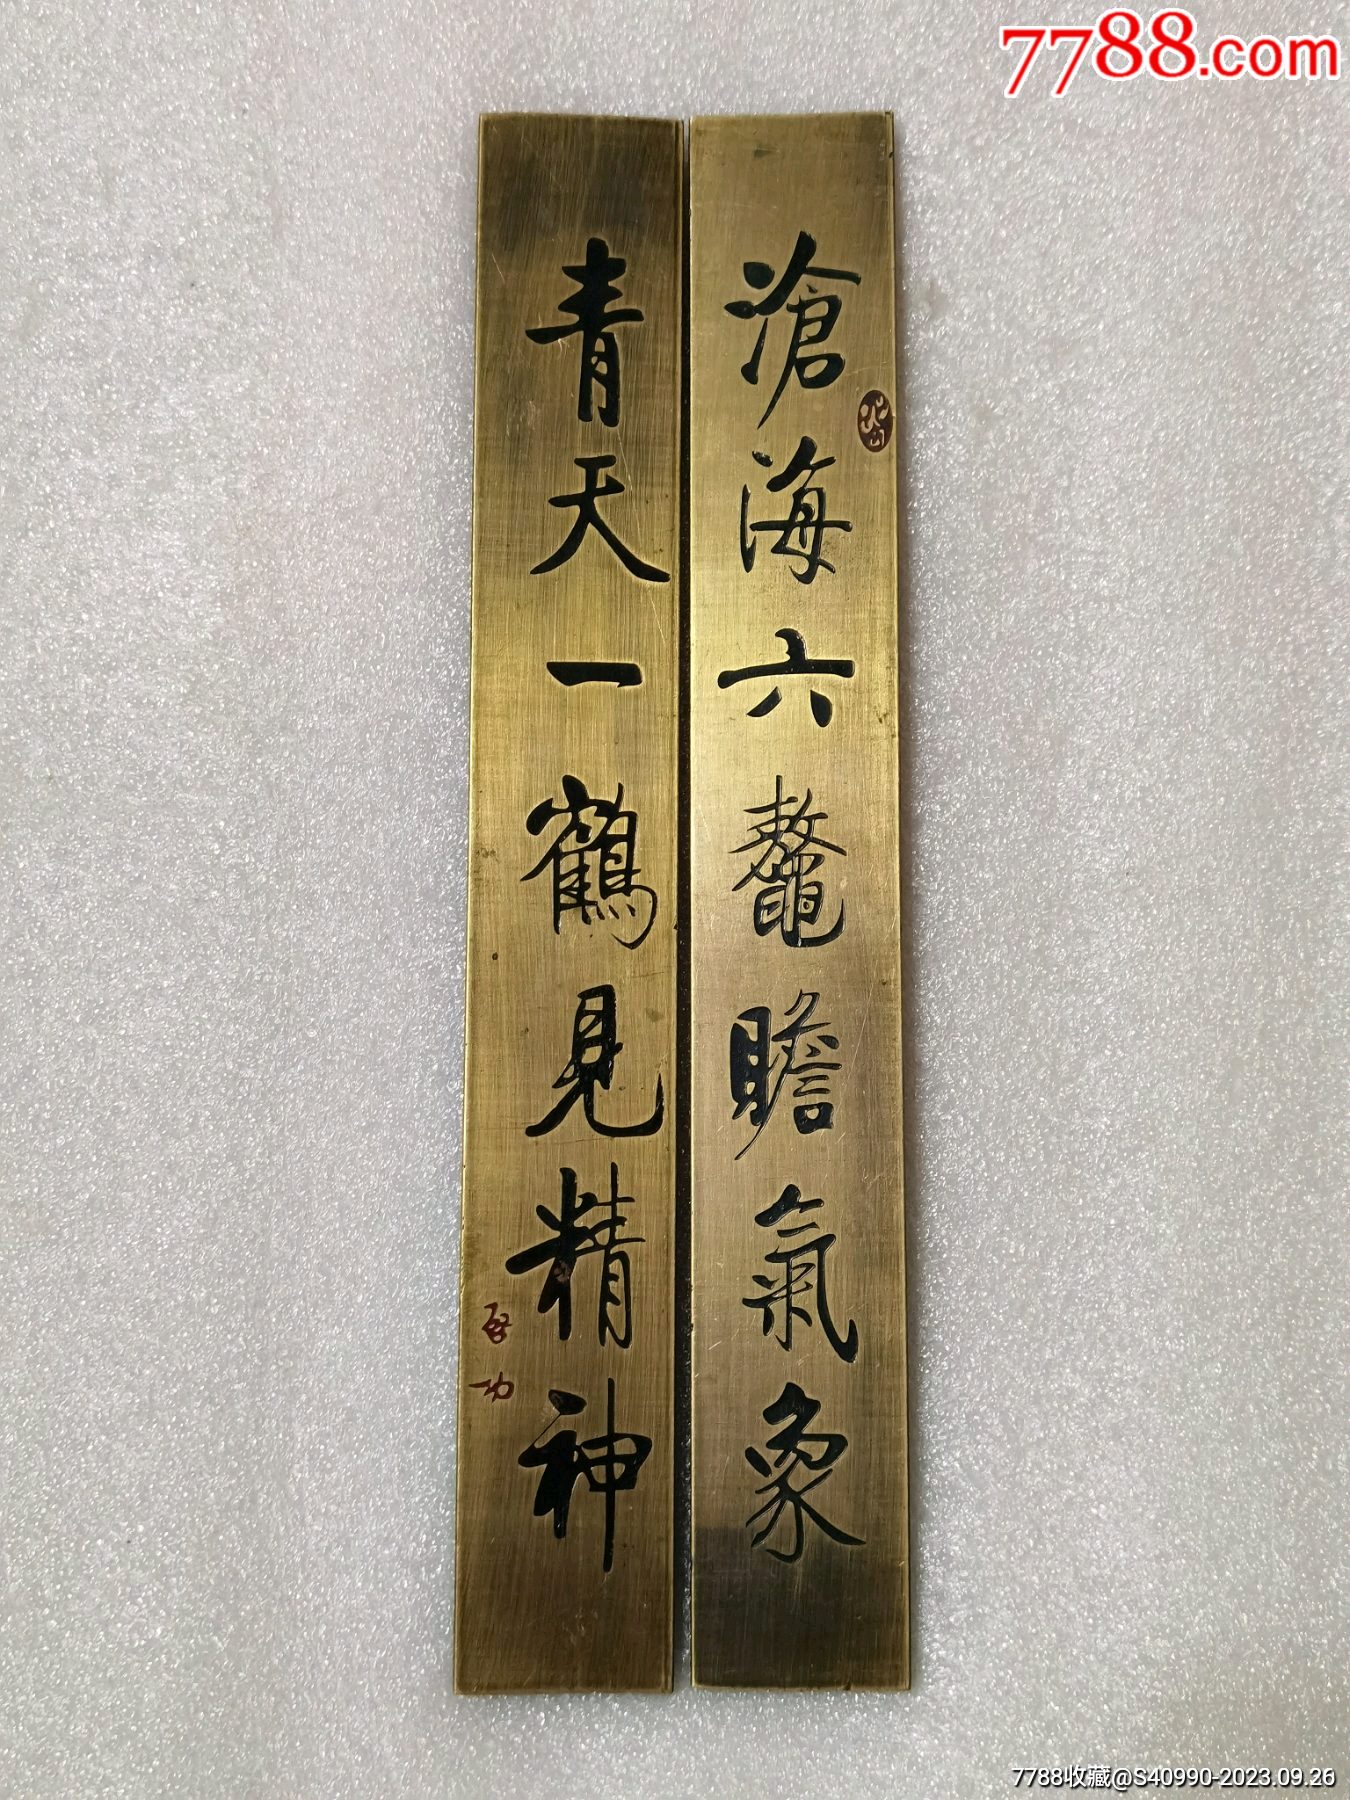 7788.com
滄海六鼇瞻氣象
青天一鶴見精神
启功
7788收藏@S40990-2023.09.26